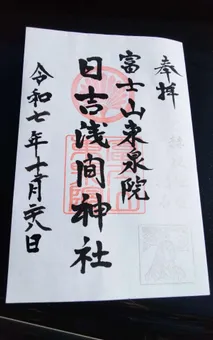 奉拝
富士山東泉院
日吉浅間神社
令和七年十一月二八日